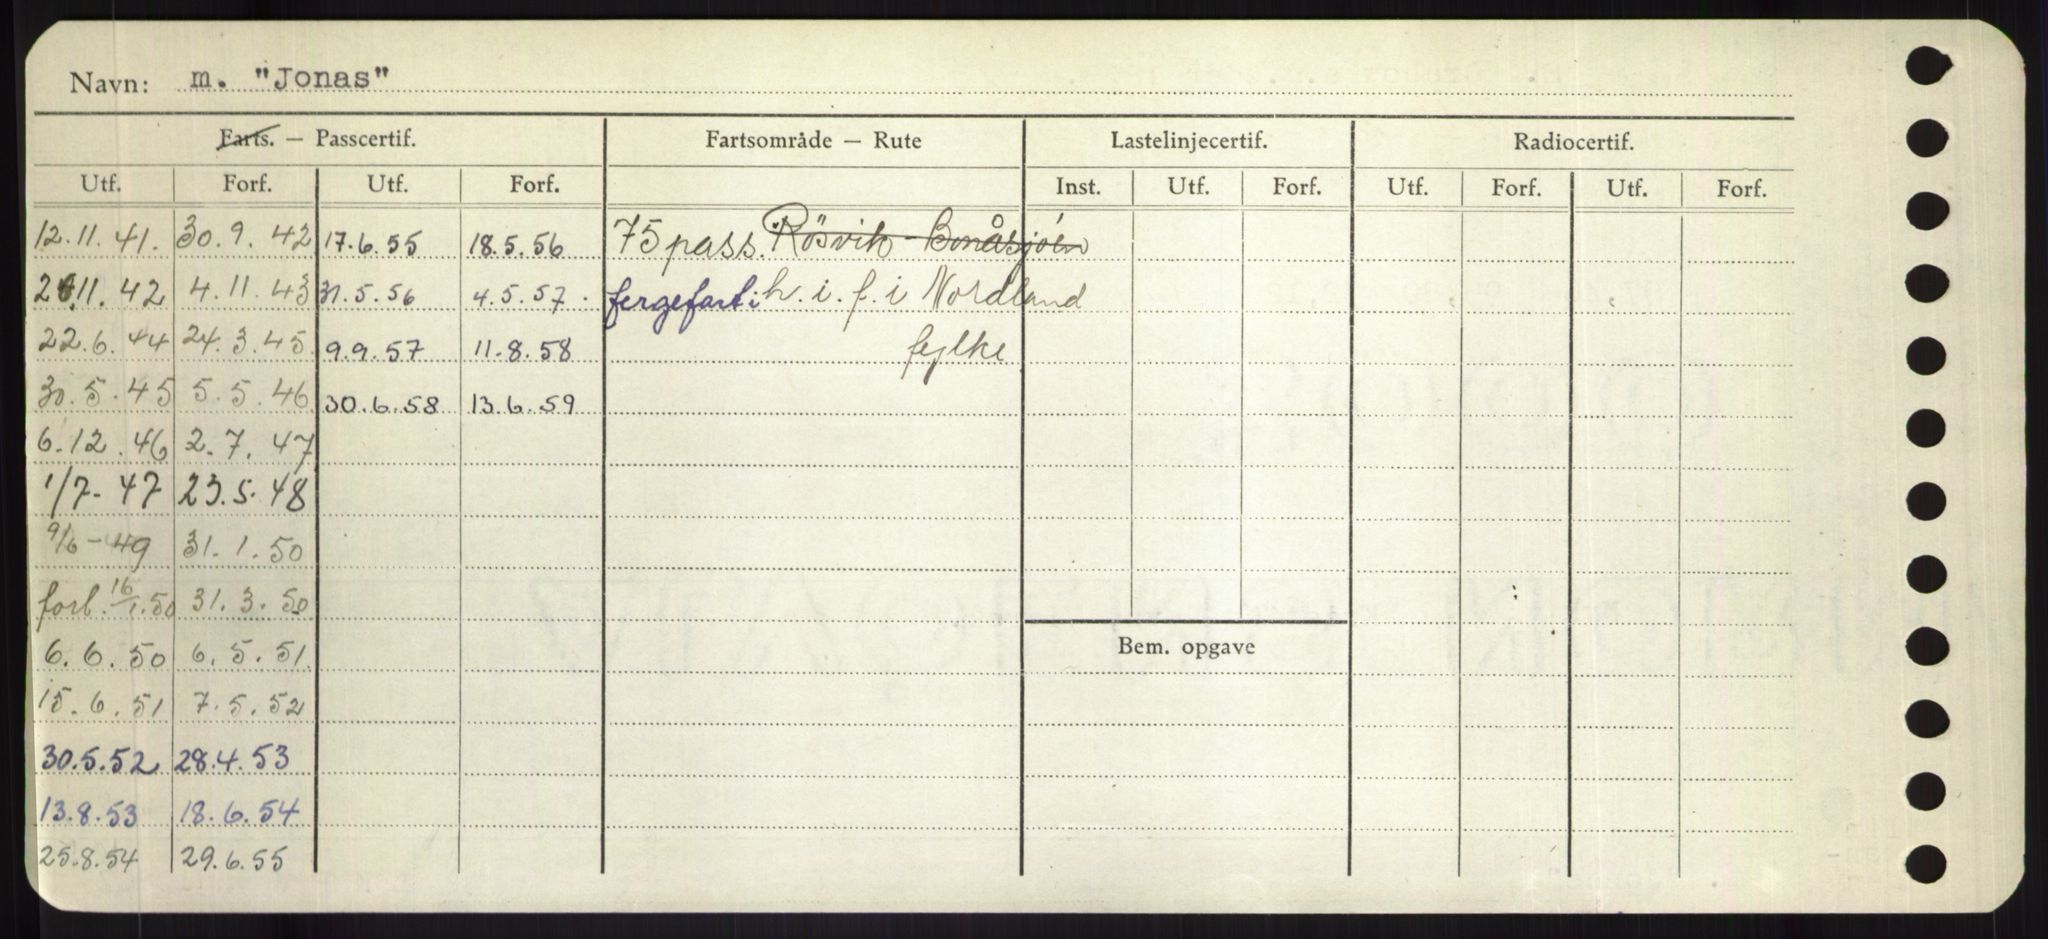 Navn: m. "Jonas"
Farts. — Passcertif. Fartsområde — Rute Lastelinjecertif. Radiocertif.
Utf. Forf. Utf. Forf. Inst. Utf. Forf. Utf. Forf. Utf. Forf.
12.11.41. 30.9.42 17.6.55 18.5.56 75 pass. Rösvik - Bonåsjöen
11.42 4.11.43 31.5.56 4.5.57. fergefart i h.i.f. i Nordland
22.6.44 24.3.45. 9.9.57 11.8.58 fylke
30.5.45 5.5.46 30.6.58 13.6.59
6.12.46 2.7.47
1/7-47 23.5.48
9/6-49 31.1.50
forl. 16/1.50 31.3.50
6.6.50 6.5.51. Bem. opgave
15.6.51 7.5.52
30.5.52 28.4.53
13.8.53 18.6.54
25.8.54 29.6.55